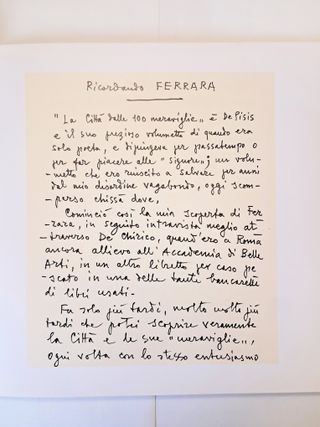 Ricordando FERRARA
"La Città dalle 100 meraviglie„ è De Pisis
e il suo prezioso volumetto di quando era
solo poeta, e dipingeva per passatempo o
per far piacere alle "signore„; un volu-
metto che ero riuscito a salvare per anni
dal mio disordine vagabondo, oggi scom-
parso chissà dove,
Cominciò così la mia scoperta di Fer-
rara, in seguito intravista meglio at-
traverso De Chirico, quand'ero a Roma
ancora allievo all'Accademia di Belle
Arti, in un altro libretto per caso pe-
scato in una delle tante bancarelle
di libri usati.
Fu solo più tardi, molto molto più
tardi che potei scoprire veramente
la Città e le sue "meraviglie„,
ogni volta con lo stesso entusiasmo